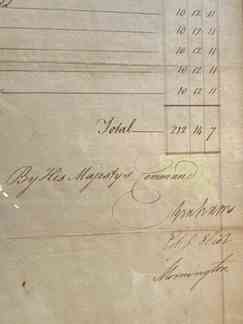 10 12 11
10 12 11
10 12 11
10 12 11
10 12 11
Total 212 14 7
By His Majesty's Command
Grahams
Mornington